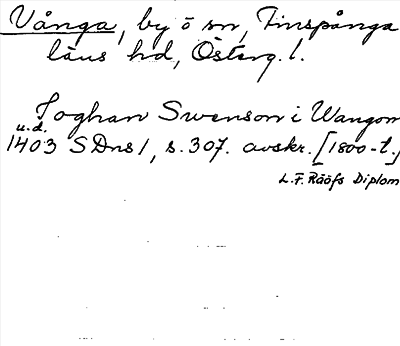 Vånga, by ö sn, Finspånga
läns hd, Österg. l.
Joghan Swenson i Wangom
u.d.
1403 SDns 1, s. 307. avskr. [1800-t.]
L.F. Rääfs Diplom